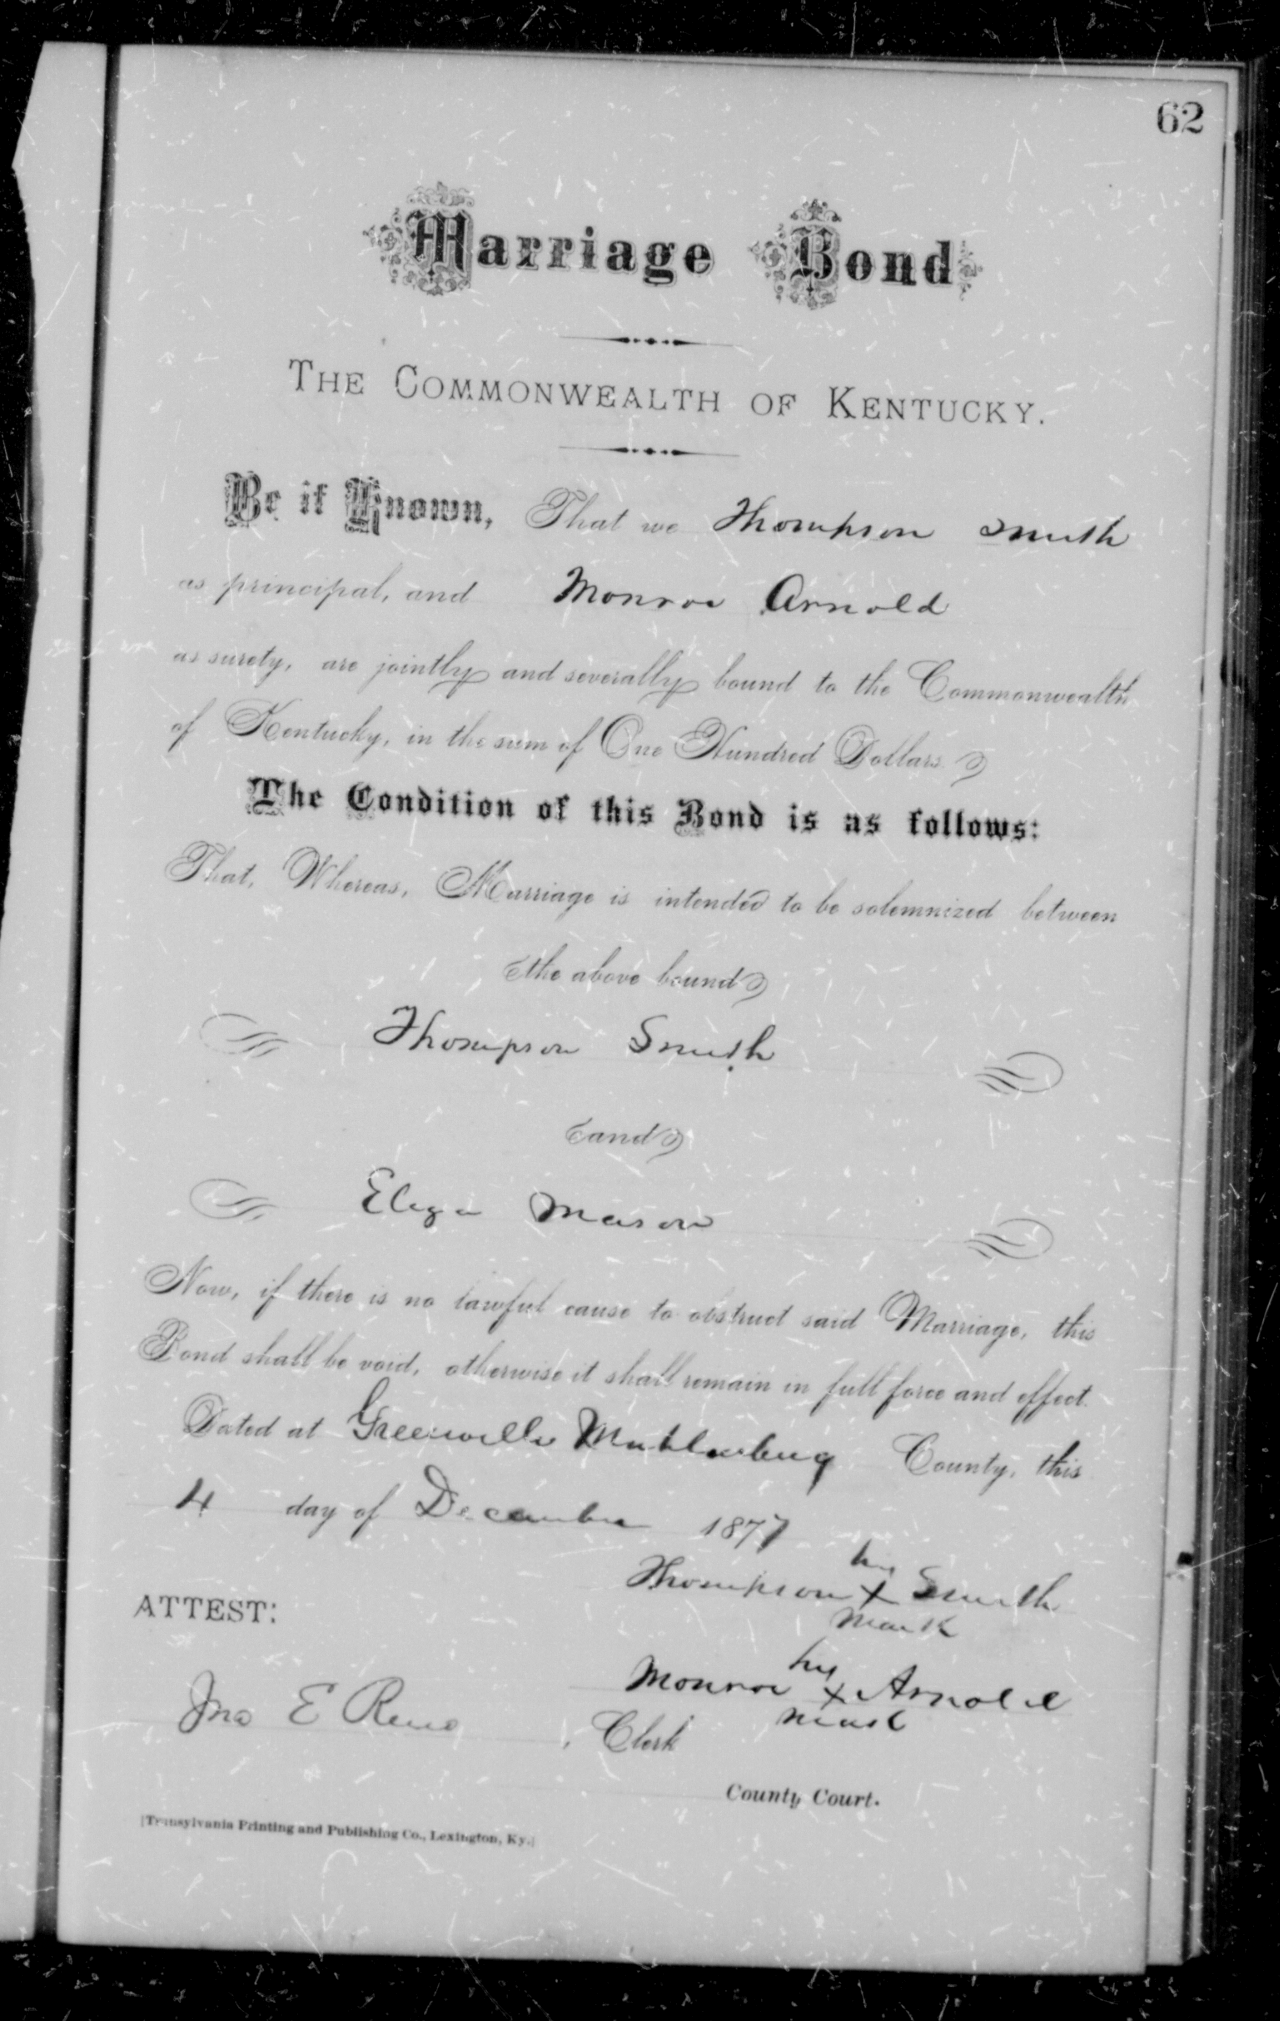 62
Marriage Bond
THE COMMONWEALTH OF KENTUCKY.
Be it Known, That we Thompson Smith
as principal, and Monroe Arnold
as surety, are jointly and severally bound to the Commonwealth
of Kentucky, in the sum of One Hundred Dollars.
The Condition of this Bond is as follows:
That, Whereas, Marriage is intended to be solemnized between
the above bound
Thompson Smith
and
Eliza Mason
Now, if there is no lawful cause to obstruct said Marriage, this
Bond shall be void, otherwise it shall remain in full force and effect.
Dated at Greenville Muhlenburg County, this
4 day of December 1877
his
Thompson x Smith
mark
ATTEST:
his
Monroe x Arnold
mark
Jno E Reno, Clerk
County Court.
[Transylvania Printing and Publishing Co., Lexington, Ky.]